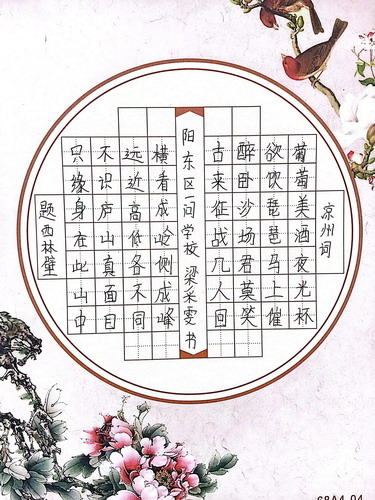 凉州词
葡萄美酒夜光杯
欲饮琵琶马上催
醉卧沙场君莫笑
古来征战几人回
阳东区一问学校 梁采雯书
横看成岭侧成峰
远近高低各不同
不识庐山真面目
只缘身在此山中
题西林壁